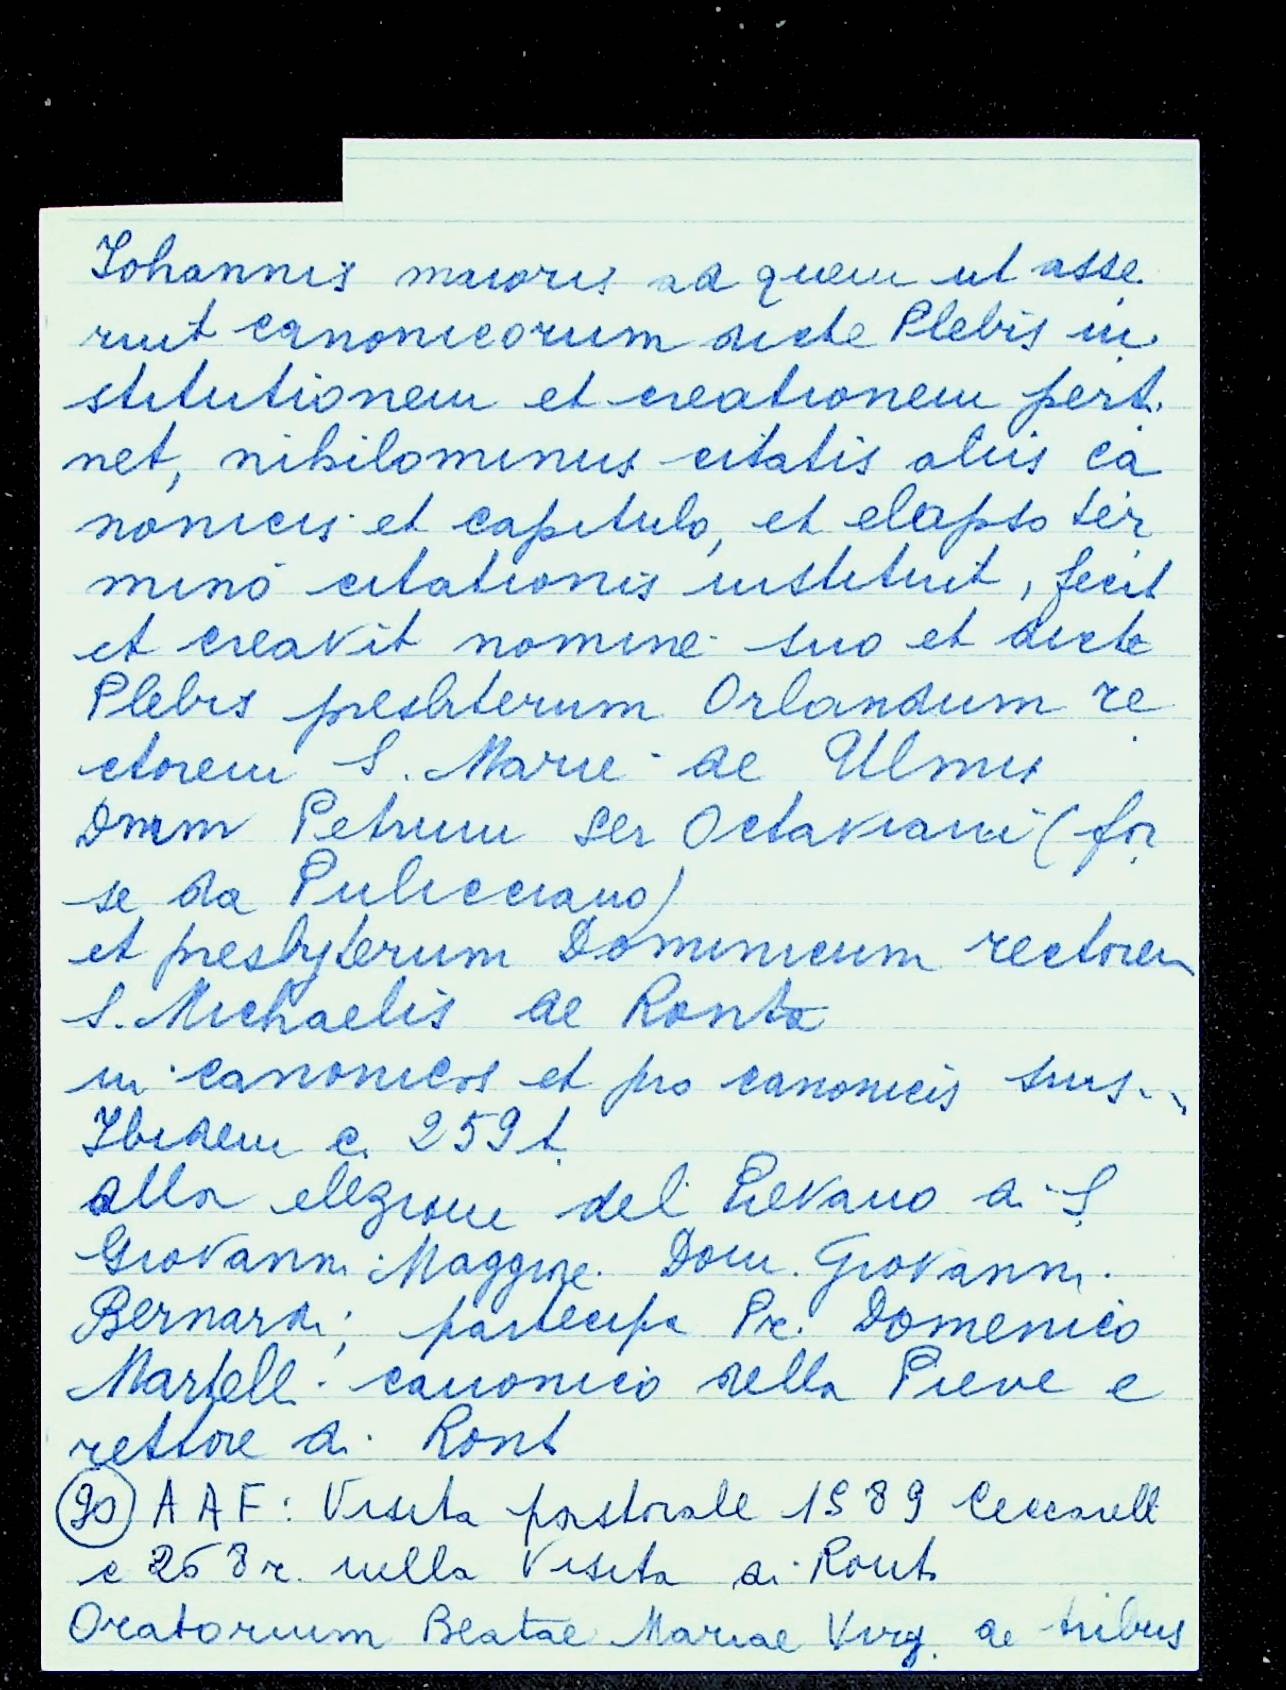 Iohannis maioris ad quem ut asse
ruit canonicorum dicte Plebis in
stitutionem et creationem perti
net, nihilominus citatis aliis ca
nonicis et capitulo, et elapso ter
mino citationis instituit, fecit
et creavit nomine suo et dicte
Plebis presbiterum Orlandum re
ctorem S. Marie de Ulmis
Dnm Petrum Ser Octaviani (for
se da Pulicciano)
et presbyterum Dominicum rectorem
S. Michaelis de Ronta
in canonicos et pro canonicis suis..
Ibidem c. 259 t
alla elezione del Pievano di S
Giovanni Maggiore. Dom. Giovanni
Bernardi; partecipa Pr. Domenico
Martelli canonico della Pieve e
rettore di Ronta
90 AAF: Visita pastorale 1589 Ceccarelli
c 268 r. nella Visita di Ronta
Oratorium Beatae Mariae Virg. de tribus